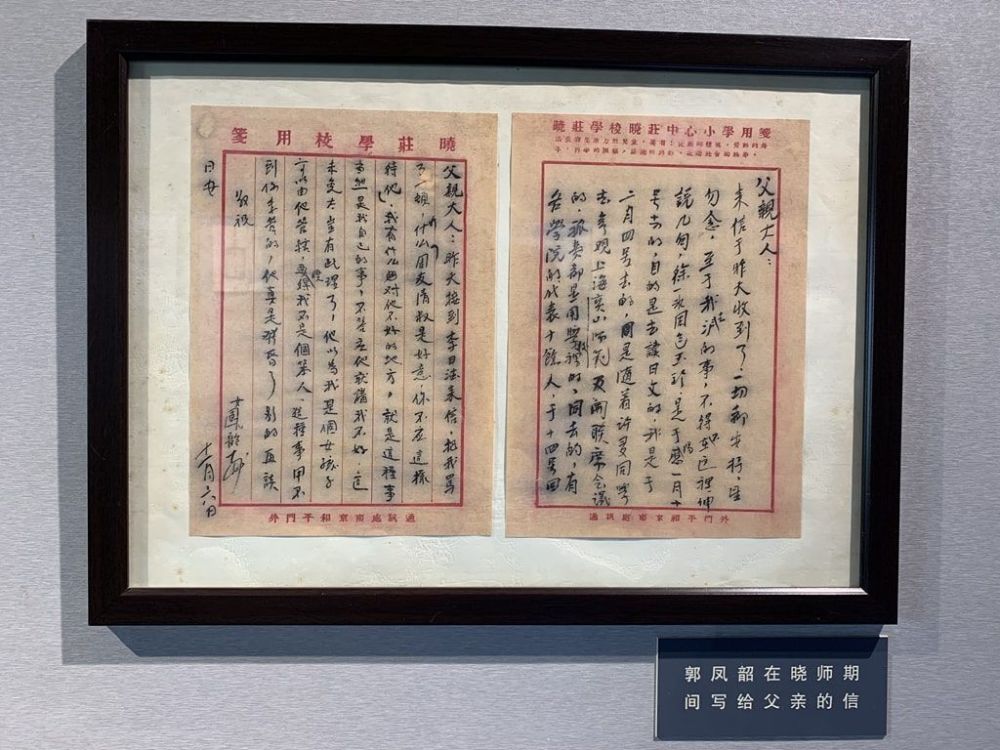 曉莊學校曉莊中心小學用箋
父親大人：
來信于昨天收到了，一切
勿念，至于我的事，不得在這裡
說几句，徐一次同包玉珍是于一月十
号去的，目的是去讀日文的，我是于
二月四号去的，同是隨着許多同學
去參观上海寶山师范及開联席會議
的，旅費都是用學校的，同去的，有
各學院的代表十餘人，于十四号回
通訊處南京和平門外
曉莊學校用箋
父親大人：昨天接到李日法來信，把我罵
了一頓，什么同友清叔是好意你不应這樣
待他，我有什么对他不好的地方，就是這種事
當然是我自己的事，不答应他就講我不好，這
未免太豈有此理了，他以為我是個女孩子
可以由他管轄，我不是個笨人，這種事用不
到你来管的，他真是發昏了，别的再談
敬祝
日安
女鳳韶
十二月六日
通訊處南京和平門外
郭凤韶在晓师期
间写给父亲的信